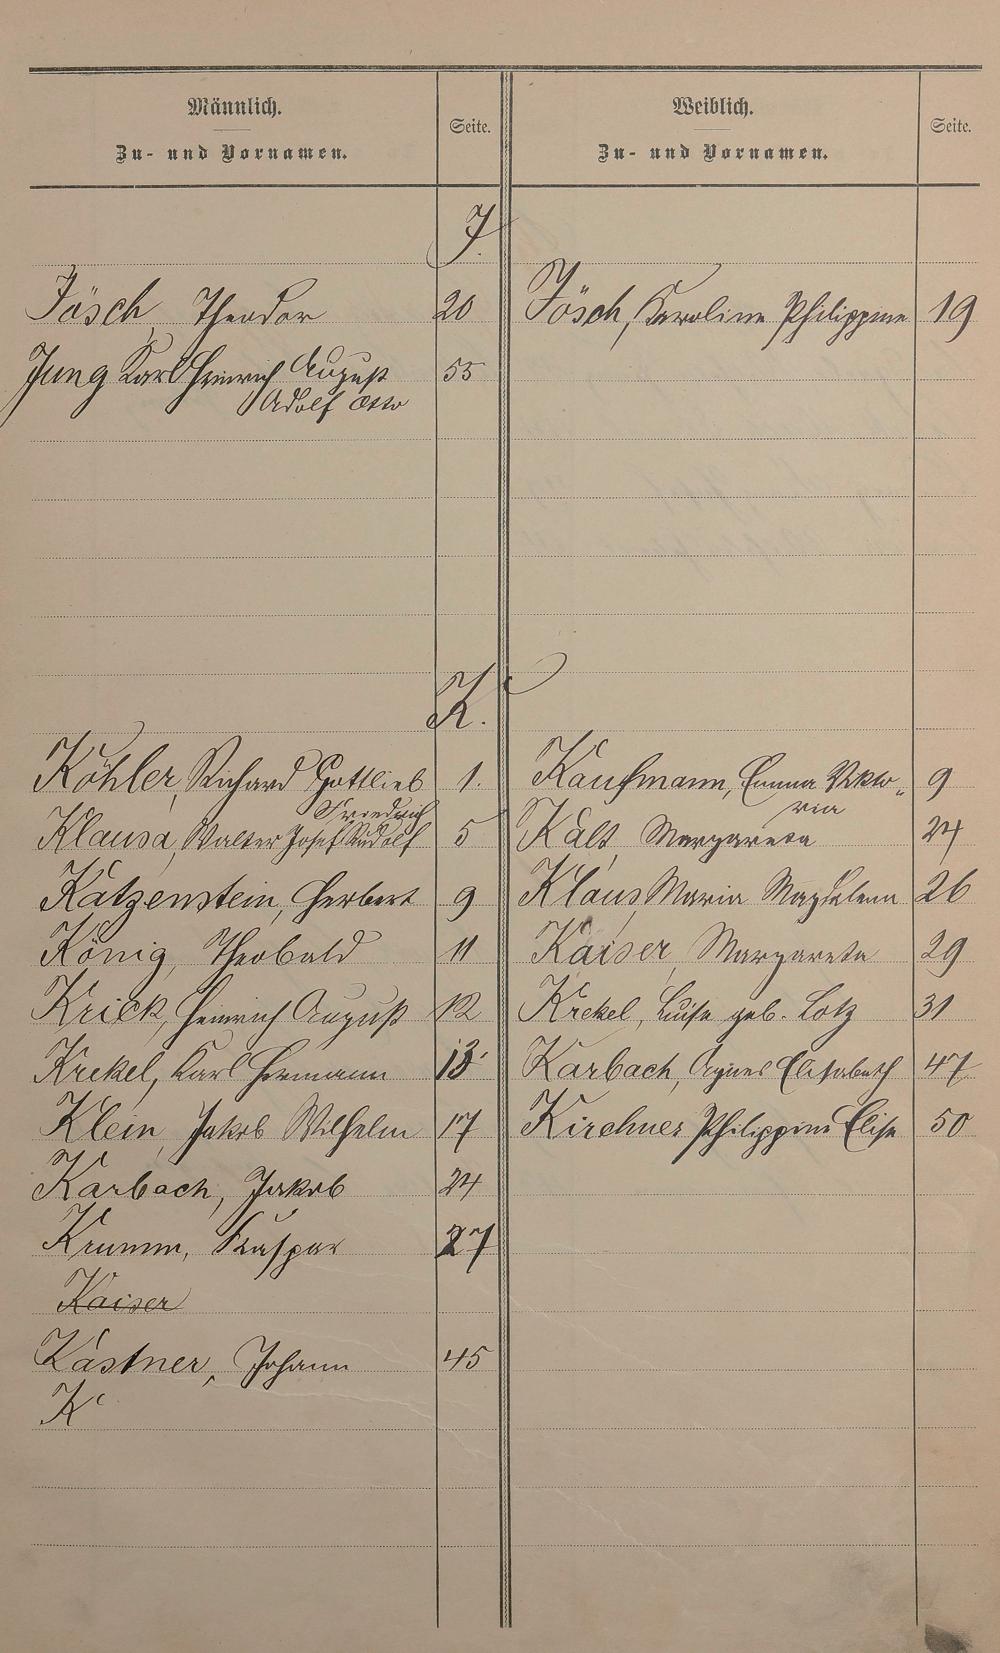 Männlich.
Zu- und Vornamen.
Seite.
Weiblich.
Zu- und Vornamen.
Seite.
J.
Jösch, Theodor 20
Jösch, Karoline Philippine 19
Jung Karl Heinrich August 55
Adolf Otto
K.
Köhler, Richard Gottlieb 1.
Kaufmann, Emma Vikto- 9
Friedrich
ria
Klausa, Walter Josef Rudolf 5
Kalt, Margareta 24
Katzenstein, Herbert 9
Klaus, Maria Magdalena 26
König, Theobald 11
Kaiser, Margareta 29
Krick, Heinrich August 12
Krekel, Luise geb. Lotz 31
Krekel, Karl Hermann 13
Karbach, Agnes Elisabeth 47
Klein, Jakob Wilhelm 17
Kirchner Philippine Elise 50
Karbach, Jakob 24
Krumm, Kaspar 27
Kaiser
Kästner, Johann 45
K